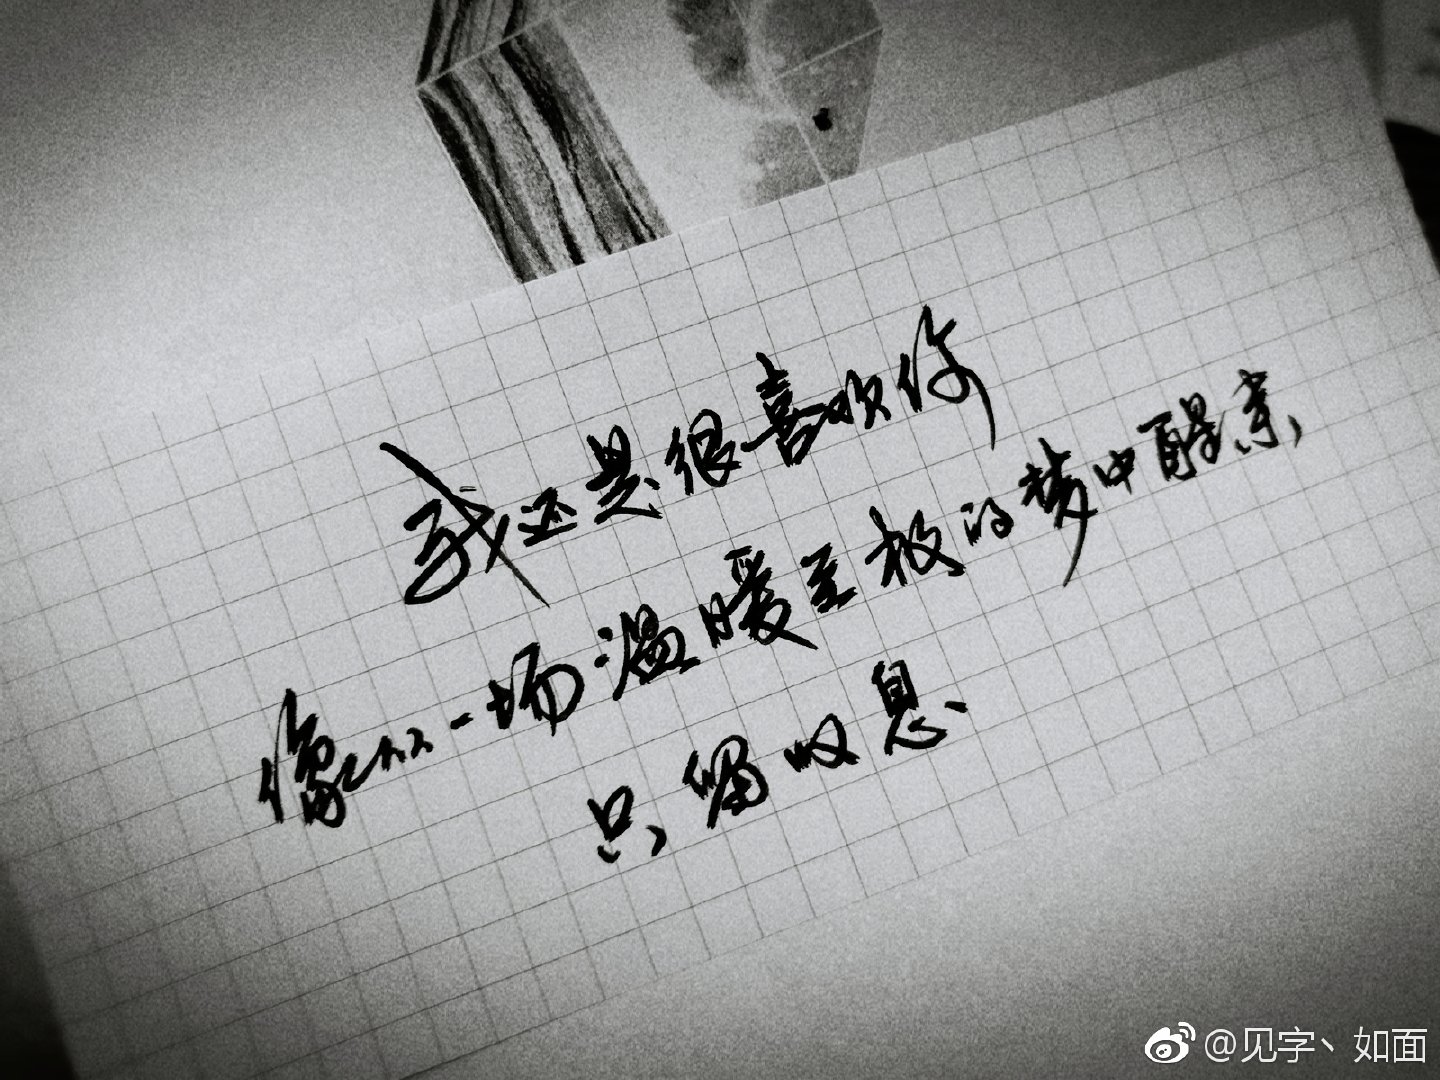 我还是很喜欢你
像从一场温暖至极的梦中醒来,
只留叹息
@见字丶如面